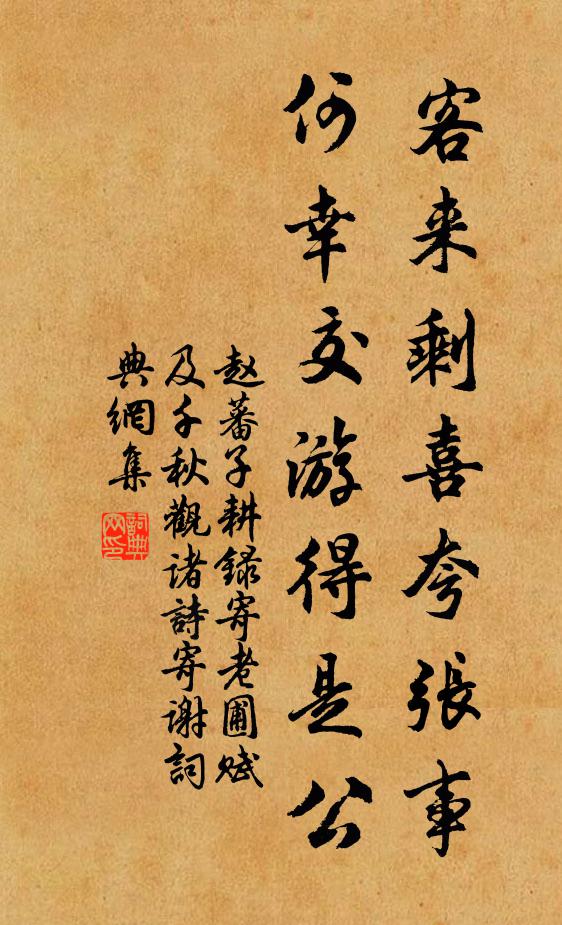 客来剩喜夸張事
何幸交游得是公
赵蕃子耕録寄老圃赋
及千秋觀诸詩寄谢詞
典網集
詞典
网印